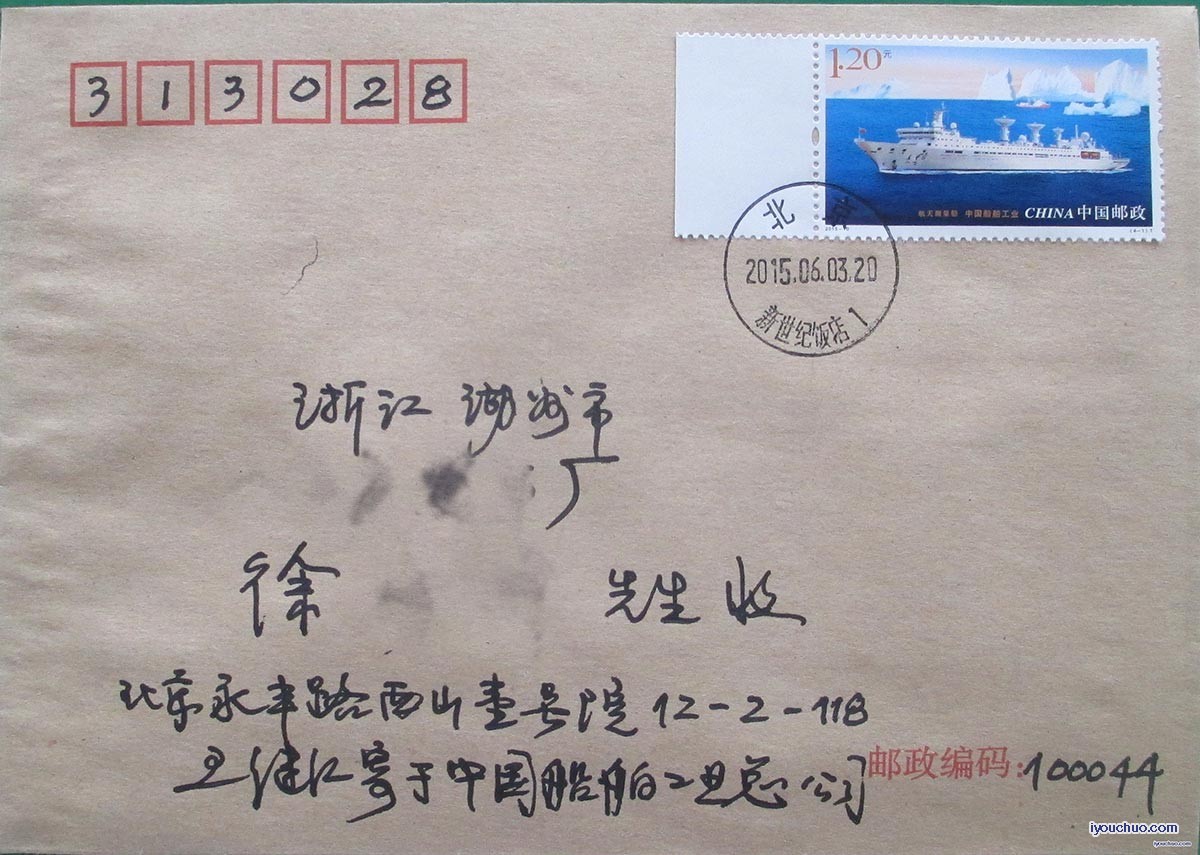 313028
1.20元
航天测量船 中国船舶工业 CHINA中国邮政
(4-1)T
北京
2015.06.03.20
新世纪饭店1
浙江 湖州市
厂
徐 先生 收
北京永丰路西山壹号院12-2-118
王继江寄于中国船舶工业总公司
邮政编码:100044
iyouchuo.com
iyouchuo.com